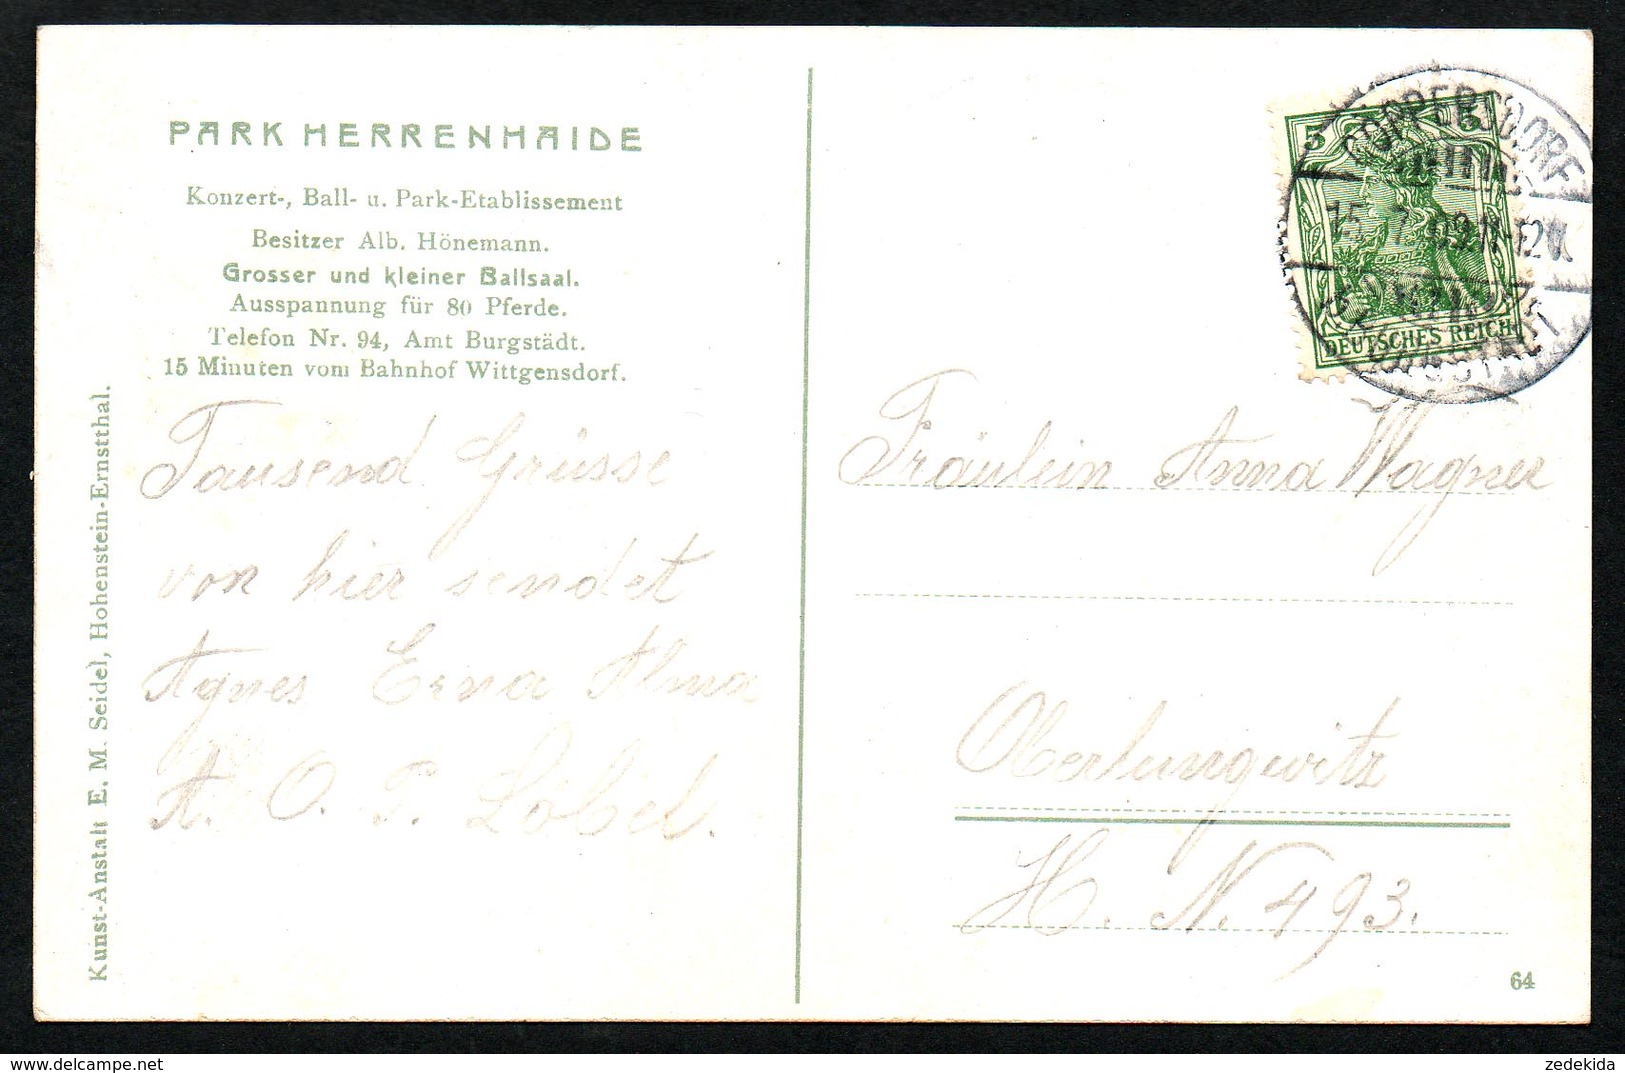 PARK HERRENHAIDE
Konzert-, Ball- u. Park-Etablissement
Besitzer Alb. Hönemann.
Grosser und kleiner Ballsaal.
Ausspannung für 80 Pferde.
Telefon Nr. 94, Amt Burgstädt.
15 Minuten vom Bahnhof Wittgensdorf.
Tausend Grüsse
von hier sendet
Agnes Erna Alma
A. O. P. Löbel.
Kunst-Anstalt E. M. Seidel, Hohenstein-Ernstthal.
5 5
DEUTSCHES REICH
15. 7. 09. 11-12
Fräulein Anna Wagner
Oberlungwitz
H. N. 493.
64
zedekida